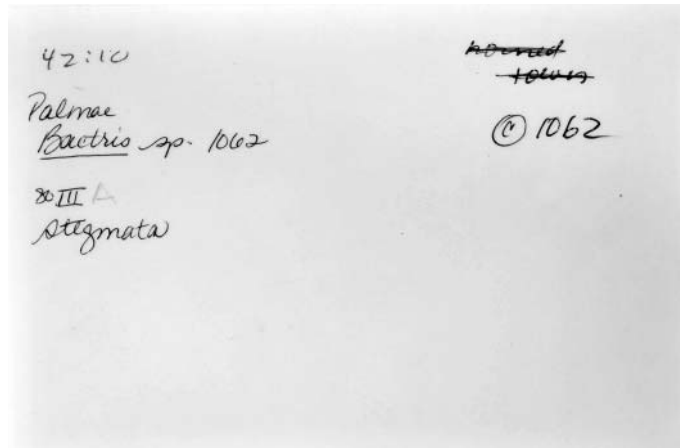 42:10
Palmae
Bactris sp. 1062
80 III A
Stegmata
© 1062